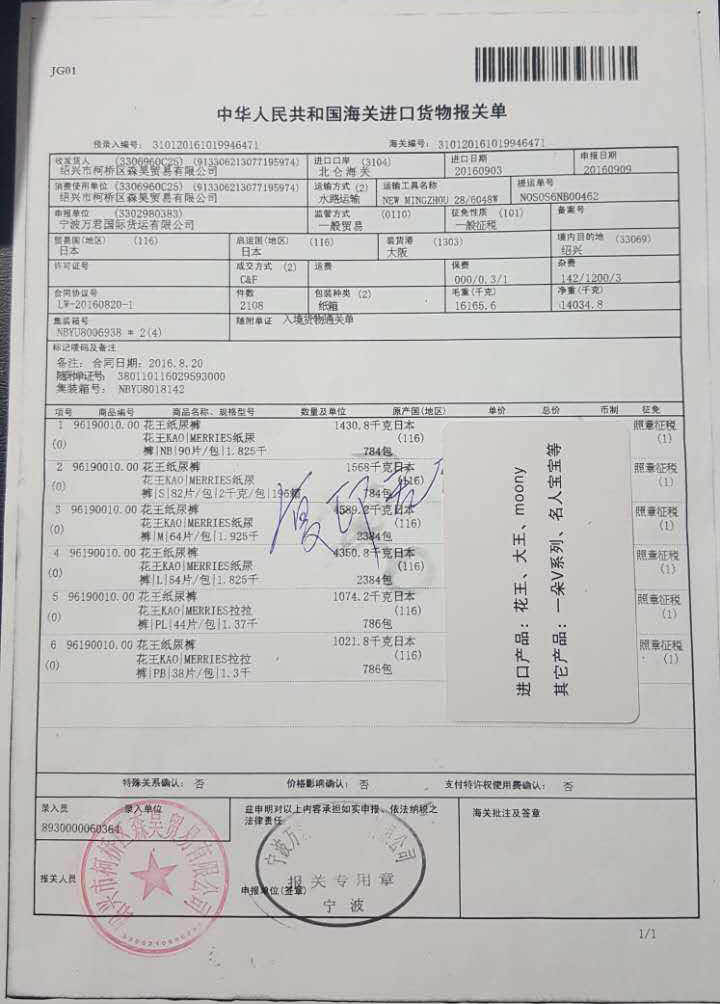 JG01
中华人民共和国海关进口货物报关单
预录入编号： 310120161019946471 海关编号： 310120161019946471
收发货人 (3306960C25) (913306213077195974) 进口口岸 (3104) 进口日期 申报日期
绍兴市柯桥区森昊贸易有限公司 北仑海关 20160903 20160909
消费使用单位 (3306960C25) (913306213077195974) 运输方式 (2) 运输工具名称 提运单号
绍兴市柯桥区森昊贸易有限公司 水路运输 NEW MINGZHOU 28/6048W NOSOS6NB00462
申报单位 (3302980383) 监管方式 (0110) 征免性质 (101) 备案号
宁波万君国际货运有限公司 一般贸易 一般征税
贸易国(地区) (116) 启运国(地区) (116) 装货港 (1303) 境内目的地 (33069)
日本 日本 大阪 绍兴
许可证号 成交方式 (2) 运费 保费 杂费
C&F 000/0.3/1 142/1200/3
合同协议号 件数 包装种类 (2) 毛重(千克) 净重(千克)
LW-20160820-1 2108 纸箱 16165.6 14034.8
集装箱号 随附单证 入境货物通关单
NBYU8006938 * 2(4)
标记唛码及备注
备注： 合同日期：2016.8.20
随附单证号： 380110116029593000
集装箱号： NBYU8018142
项号 商品编号 商品名称、规格型号 数量及单位 原产国(地区) 单价 总价 币制 征免
1 96190010.00 花王纸尿裤 1430.8千克 日本 照章征税
(0) 花王KAO|MERRIES纸尿 (116) (1)
裤|NB|90片/包|1.825千 784包
2 96190010.00 花王纸尿裤 1568千克 日本 照章征税
(0) 花王KAO|MERRIES纸尿 (116) (1)
裤|S|82片/包|2千克/包|196箱 784包
3 96190010.00 花王纸尿裤 4589.2千克 日本 照章征税
(0) 花王KAO|MERRIES纸尿 (116) (1)
裤|M|64片/包|1.925千 2384包
4 96190010.00 花王纸尿裤 4350.8千克 日本 照章征税
(0) 花王KAO|MERRIES纸尿 (116) (1)
裤|L|54片/包|1.825千 2384包
5 96190010.00 花王纸尿裤 1074.2千克 日本 照章征税
(0) 花王KAO|MERRIES拉拉 (116) (1)
裤|PL|44片/包|1.37千 786包
6 96190010.00 花王纸尿裤 1021.8千克 日本 照章征税
(0) 花王KAO|MERRIES拉拉 (116) (1)
裤|PB|38片/包|1.3千 786包
复印无
进口产品：花王、大王、moony
其它产品：一朵V系列、名人宝宝等
特殊关系确认： 否 价格影响确认： 否 支付特许权使用费确认： 否
录入员 录入单位 兹申明对以上内容承担如实申报、依法纳税之 海关批注及签章
法律责任
8930000060364
报关人员 申报单位(签章)
绍兴市柯桥区森昊贸易有限公司
宁波万
限公司
报关专用章
宁波
1/1